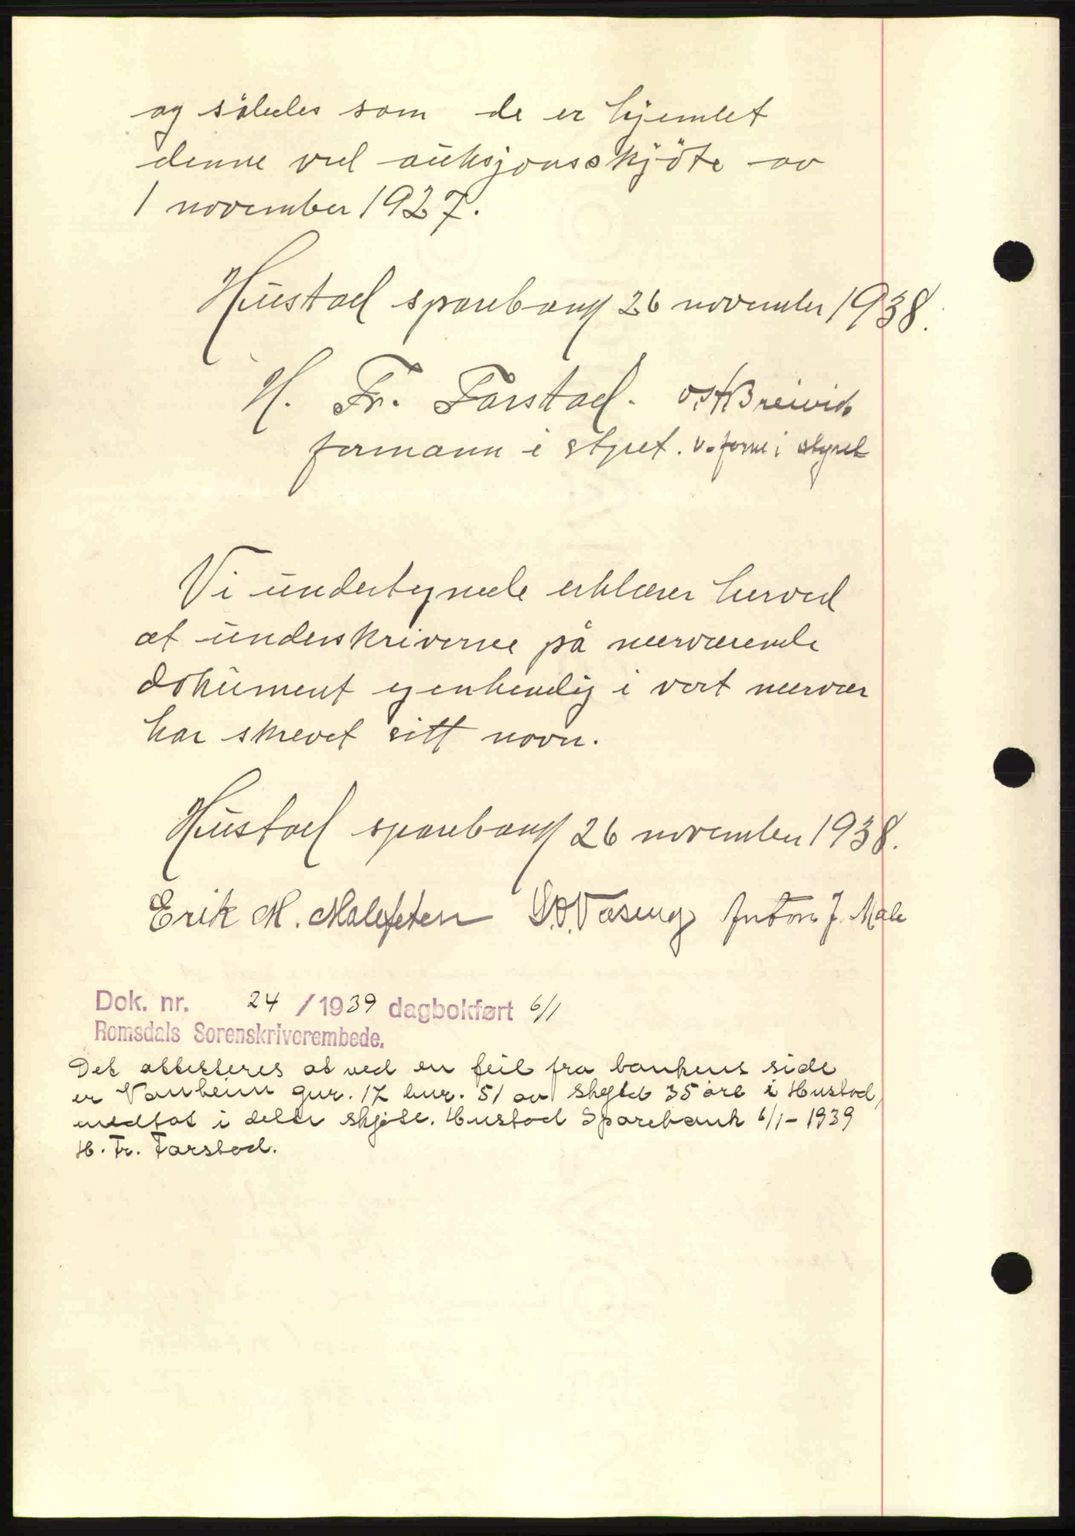 og således som de er hjemlet
denne ved auksjonsskjøte av
1 november 1927.
Hustad sparebank 26 november 1938.
H. Fr. Farstad. Breivik
formann i styret. v. form i styret
Vi undertegnede erklærer herved
at underskriverne på nærværende
dokument egenhendig i vort nærvær
har skrevet sitt navn.
Hustad sparebank 26 november 1938.
Erik M. Malefeten Anton J. Male
Dok. nr. 24 / 1939 dagbokført 6/1
Romsdals Sorenskriverembede.
Det attesteres at ved en feil fra bankens side
er Vanheim gnr. 17 bnr. 51 av skyld 35 øre i Hustad,
medtat i dette skjøte. Hustad Sparebank 6/1 - 1939
H. Fr. Farstad.